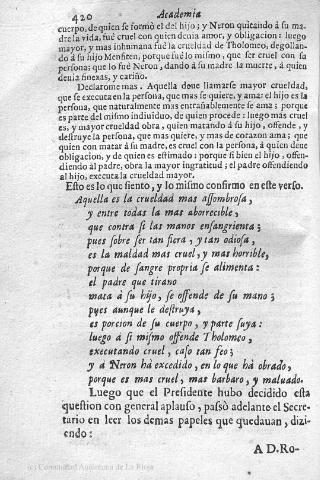 420 Academia
cuerpo, de quien se formò el del hijo; y Neron quitando à su ma-
dre la vida, fuè cruel con quien denia amor, y obligacion: luego
mayor, y mas inhumana fuè la crueldad de Tholomeo, degollan-
do à su hijo Menfiten, porque fuè lo mismo, que ser cruel con su
persona: que lo fuè Neron, dando à su madre la muerte, à quien
deuia finexas, y cariño.
Declarome mas. Aquella deue llamarse mayor crueldad,
que se executa en la persona, que mas se quiere, y amar el hijo es la
persona, que naturalmente mas entrañablemente se ama; porque
es parte del mismo indiuiduo, de quien procede: luego màs cruel
es, y mayor crueldad obra, quien matando à su hijo, ofende, y
destruye la persona, que mas quiere, y mas de corazon ama; que
quien con matar à su madre, es cruel con la persona, à quien deue
obligacion, y de quien es estimado: porque si bien el hijo, offen-
diendo al padre, obra la mayor ingratitud; el padre offendiendo
al hijo, executa la crueldad mayor.
Esto es lo que siento, y lo mismo confirmo en este verso.
Aquella es la crueldad mas assombrosa,
y entre todas la mas aborrecible,
que contra si las manos ensangrienta;
pues sobre ser tan fiera, y tan odiosa,
es la maldad mas cruel, y mas horrible,
porque de sangre propria se alimenta:
el padre que tirano
mata à su hijo, se offende de su mano;
pues aunque le destruya,
es porcion de su cuerpo, y parte suya:
luego à si mismo offende Tholomeo,
executando cruel, caso tan feo;
y à Neron hà excedido, en lo que hà obrado,
porque es mas cruel, mas barbaro, y maluado.
Luego que el Presidente hubo decidido esta
question con general aplauso, passò adelante el Secre-
tario en leer los demas papeles que quedauan, dizi-
endo:
A D. Ro-
(c) Comunidad Autónoma de La Rioja